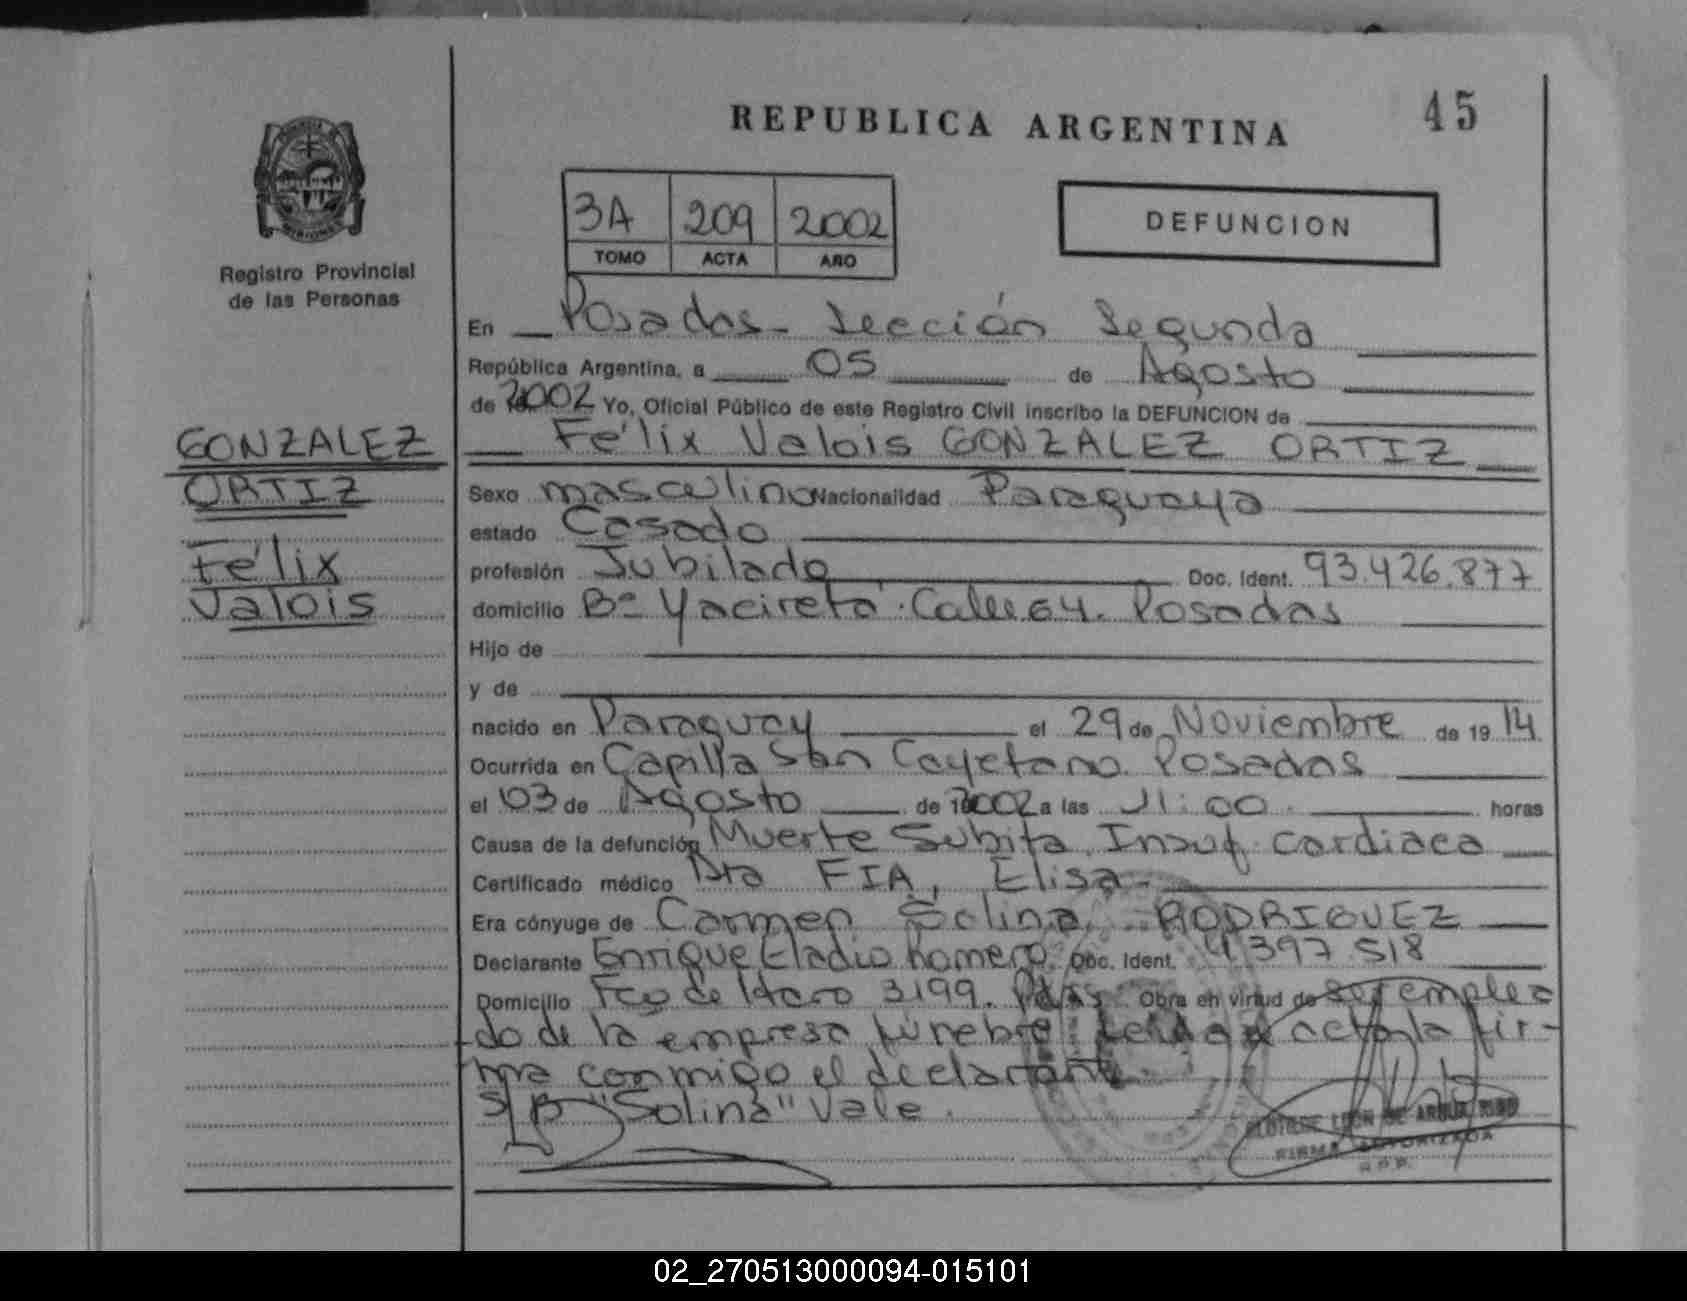 REPUBLICA ARGENTINA
45
MISIONES
Registro Provincial
de las Personas
3A 209 2002
TOMO ACTA AÑO
DEFUNCION
En Posadas - Sección Segunda
República Argentina, a 05 de Agosto
de 2002 Yo, Oficial Público de este Registro Civil inscribo la DEFUNCION de
Félix Valois GONZALEZ ORTIZ
GONZALEZ
ORTIZ
Félix
Valois
Sexo masculino Nacionalidad Paraguaya
estado Casado
profesión Jubilado Doc. Ident. 93.426.877
domicilio Bº Yacireta. Calle 64. Posadas
Hijo de
y de
nacido en Paraguay el 29 de Noviembre de 19 14
Ocurrida en Capilla San Cayetano Posadas
el 03 de Agosto de 2002 a las 11:00 horas
Causa de la defunción Muerte Subita, Insuf. cardiaca
Certificado médico Dra FIA, Elisa.
Era cónyuge de Carmen Solina RODRIGUEZ
Declarante Enrique Eladio Romero. Doc. Ident. 4.397.518
Domicilio Fco de Haro 3199. Pdas. Obra en virtud de ser emplea
do de la empresa fúnebre. Leida el acta la fir-
ma conmigo el declarante.
S/B "Solina" Vale.
LEON DE
FIRMA AUTORIZADA
02_270513000094-015101